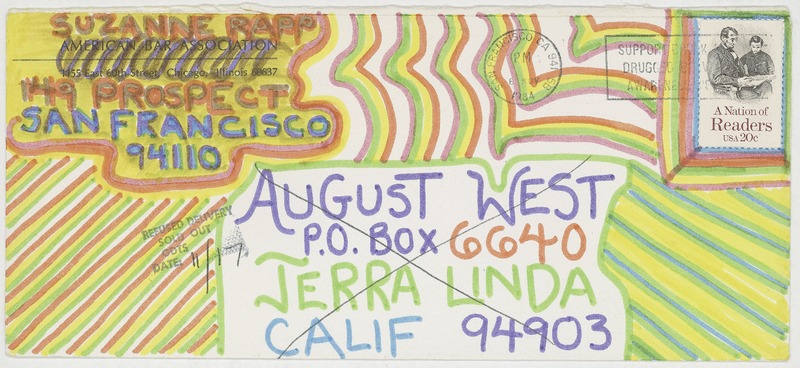 SUZANNE RAPP
AMERICAN BAR ASSOCIATION
1155 East 60th Street, Chicago, Illinois 60637
149 PROSPECT
SAN FRANCISCO
94110
SAN FRANCISCO CA
PM
1984
SUPPORT
DRUG
AWARE
A Nation of
Readers
USA 20c
REFUSED DELIVERY
SOLD OUT
GDTS
DATE: 11/17
AUGUST WEST
P.O. BOX 6640
TERRA LINDA
CALIF 94903